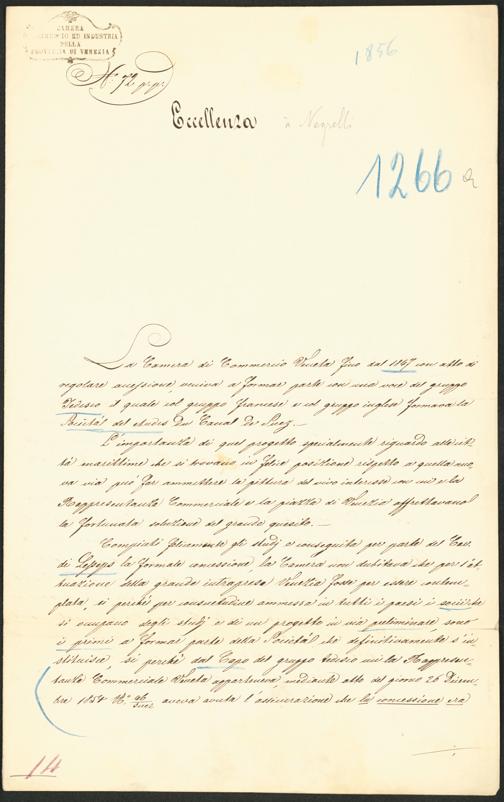 CAMERA
DI COMMERCIO ED INDUSTRIA
DELLA
PROVINCIA DI VENEZIA
N.° 72 pr
1856
Eccellenza
à Negrelli
1266
La Camera di Commercio Veneta fino dal 1847 con atto di
regolare accessione veniva a formar parte con una voce del gruppo
Tedesco il quale col gruppo francese e col gruppo inglese formava la
Società des Etudes Du Canal de Suez.—
L'importanza di quel progetto specialmente riguardo alle cit-
tà marittime che si trovano in felice posizione rispetto a quella nuo-
va via può far ammettere la pittura del vivo interesse con cui e la
Rappresentanza Commerciale e la piazza di Venezia affrettavano
la fortunata soluzione del grande quesito.—
Compiuti felicemente gli studj e conseguita per parte del Cav.
di Lesseps la formale concessione, la Camera non dubitava che per l'at-
tuazione della grande intrapresa Venezia fosse per essere contem-
plata, sì perché per consuetudine ammessa in tutti i paesi i socii che
si occupano degli studj e di un progetto in via preliminare sono
i primi a formar parte della Società che definitivamente s'in-
stituisce, sì perché dal Capo del gruppo tedesco cui la Rappresen-
tanza Commerciale Veneta apparteneva, mediante atto del giorno 26 Dicem-
bre 1854 N.° aveva avuta l'assicurazione che la concessione era
14